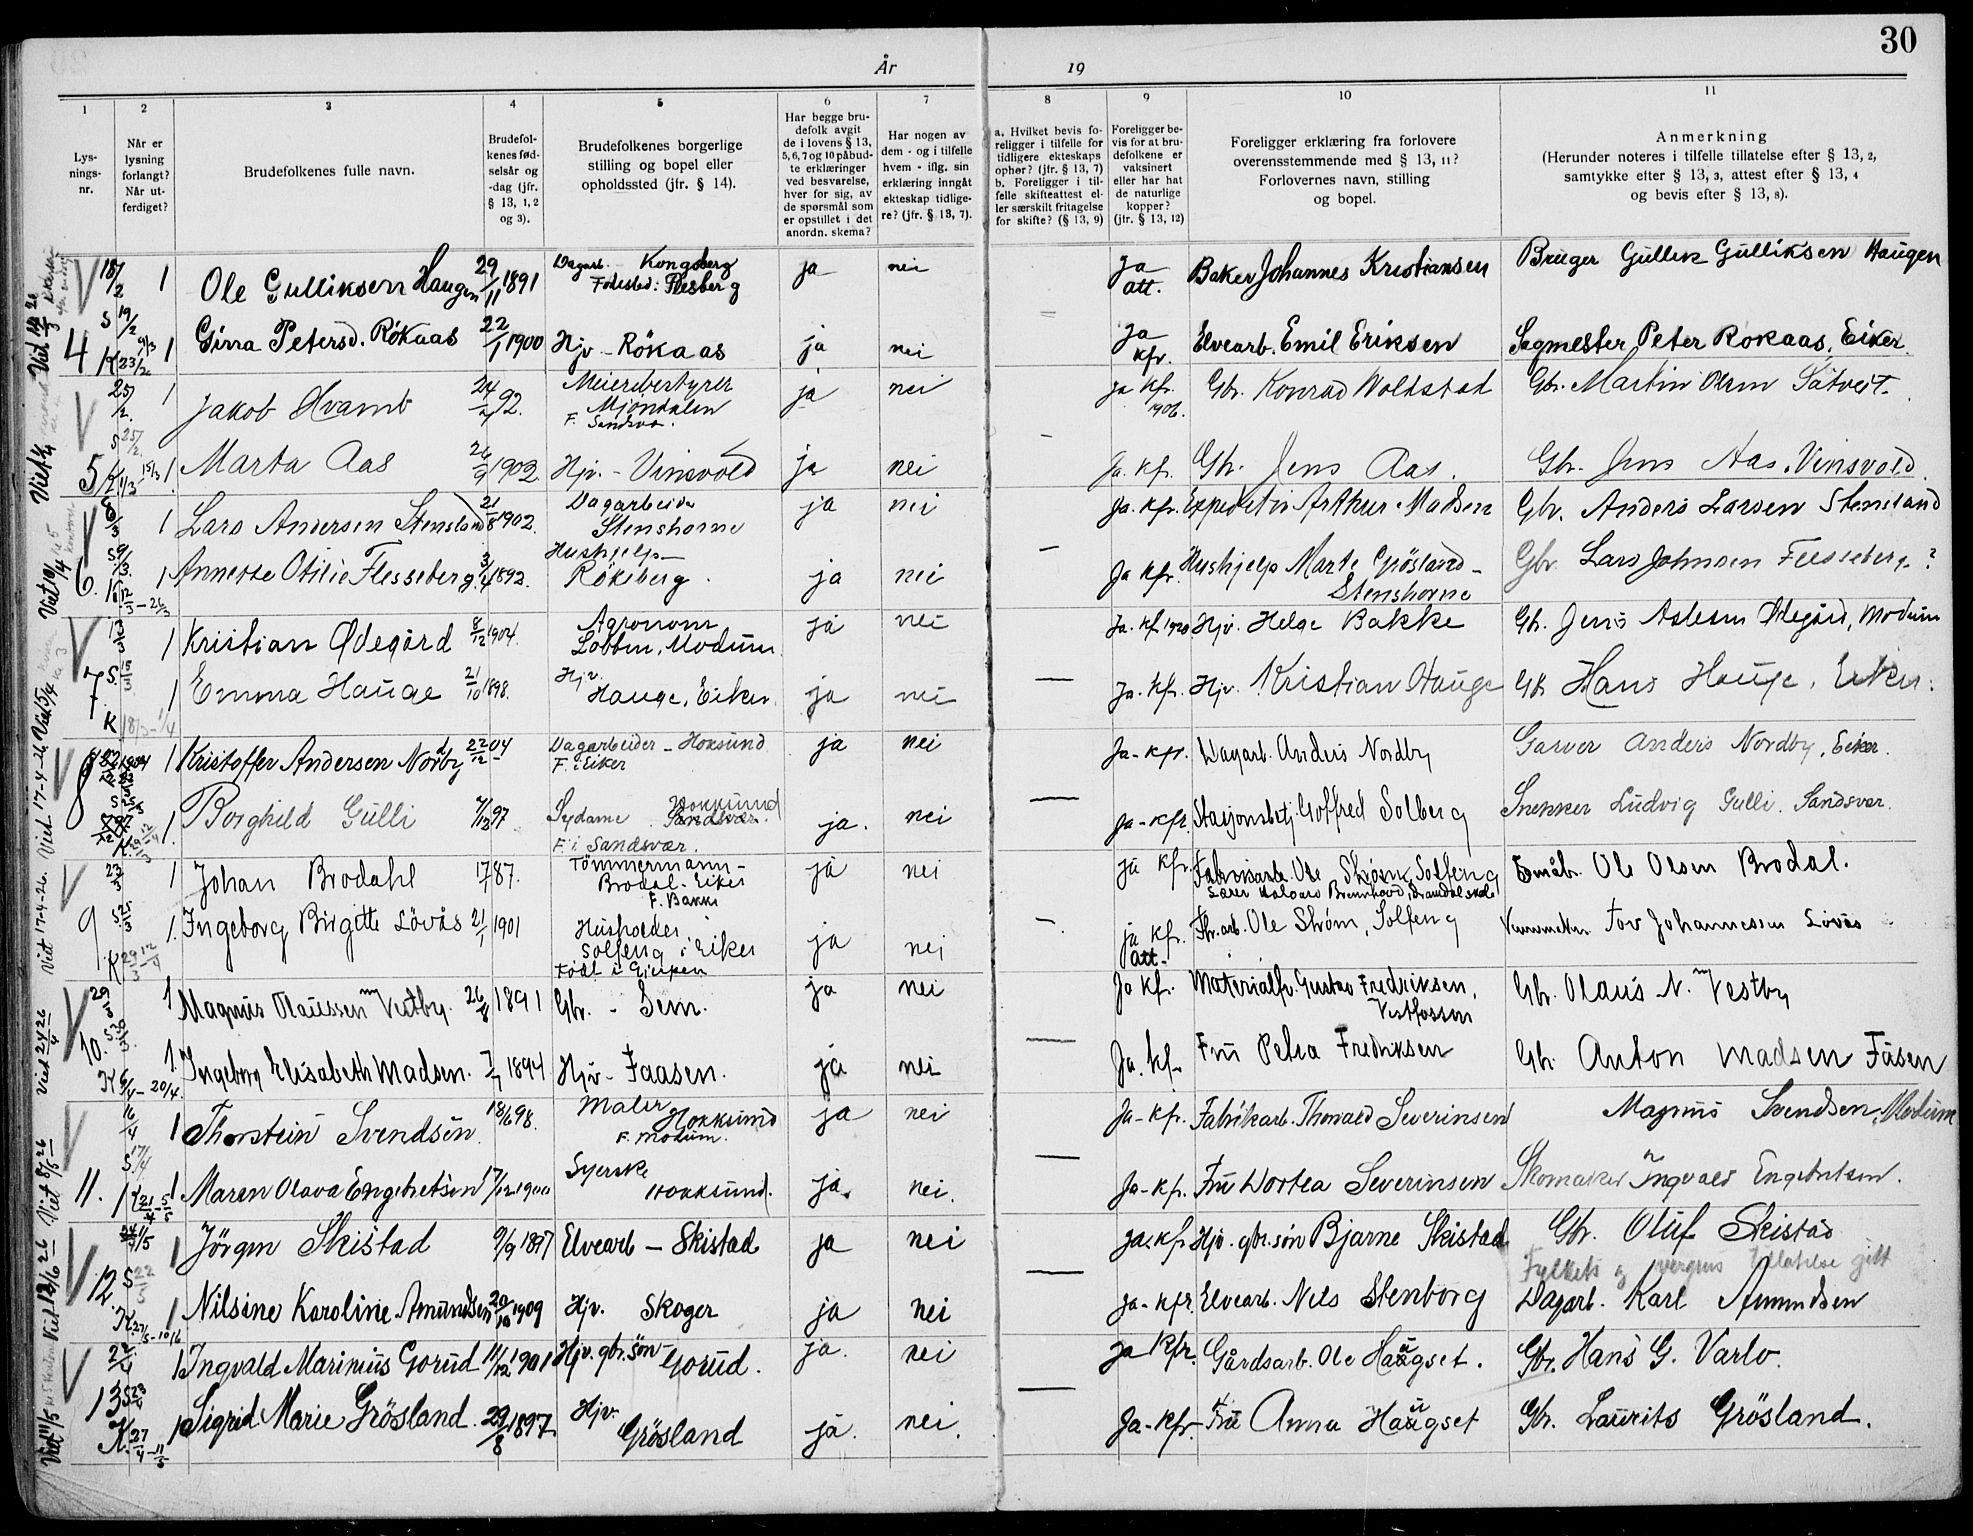 30
År 19
1 2 3 4 5 6 7 8 9 10 11
Lys-
nings-
nr.
Når er
lysning
forlangt?
Når ut-
ferdiget?
Brudefolkenes fulle navn.
Brudefol-
kenes fød-
selsår og
-dag (jfr.
§ 13, 1, 2
og 3).
Brudefolkenes borgerlige
stilling og bopel eller
opholdssted (jfr. § 14).
Har begge bru-
defolk avgit
de i lovens § 13,
5, 6, 7 og 10 påbud-
te erklæringer
ved besvarelse,
hver for sig, av
de spørsmål som
er opstillet i det
anordn. skema?
Har nogen av
dem - og i tilfelle
hvem - iflg. sin
erklæring inngått
ekteskap tidlige-
re? (jfr. § 13, 7).
a. Hvilket bevis fo-
religger i tilfelle for
tidligere ekteskaps
ophør? (jfr. § 13, 7)
b. Foreligger i til-
felle skifteattest el-
ler særskilt fritagelse
for skifte? (§ 13, 9)
Foreligger be-
vis for at bru-
defolkene er
vaksinert
eller har hat
de naturlige
kopper?
(jfr. § 13, 12)
Foreligger erklæring fra forlovere
overensstemmende med § 13, 11?
Forlovernes navn, stilling
og bopel.
Anmerkning
(Herunder noteres i tilfelle tillatelse efter § 13, 2,
samtykke efter § 13, 3, attest efter § 13, 4
og bevis efter § 13, 8).
18/2 1 Ole Gulliksen Haugen 29/11 1891 Dagarb. Kongsberg ja nei ja att. Baker Johannes Kristiansen Bruger Gullik Gulliksen Haugen
Fødested: Flesberg
4 S 19/2 K 23/2 9/3 1 Girra Petersd. Rökaas 22/1 1900 Hjv - Rökaas ja nei — ja kfr. Elvearb. Emil Eriksen Sagmester Peter Rokaas, Eiker
25/2. 1 Jakob Hvamb 24/7 92. Meieribestyrer Mjöndalen ja nei ja kf. 1906. Gbr. Konrad Woldstad Gbr. Martin Olsen Sätveit.
F. Sandsvær.
5 S 25/2 1/3 - 15/3 1. Marta Aas 26/9 1902 Hjv. - Vinsvold ja nei — Ja. Kf. Gbr. Jens Aas. Gbr. Jens Aas. Vinsvold.
6/3 1 Lars Andersen Stensland 21/8 1902. Dagarbeider Stenshorne ja nei ja. kfr. Expeditør Arthur Madsen Gbr. Anders Larsen Stensland
6. S 9/3. K 12/3 - 26/3 1 Annette Otilie Flesseberg. 3/4 1892. Hushjelp - Rökeberg. ja nei — ja kfr. Hushjelp Marte Grösland - Stenshorne Gbr. Lars Johnsen Flesseberg ?
13/3 1 Kristian Ødegård 8/12 1904. Agronom Lobben, Modum ja nei ja. kf. 1920 Hjv. Helge Bakke Gb. Jens Aslesen Ødegård, Modum
7 S. 15/3 K 18/3 - 1/4 1 Emma Hauge 21/10 1898. Hjv. Hauge, Eiker. ja nei — ja. kfr. Hjv. Kristian Hauge Gb. Hans Hauge, Eiker.
8 1 Kristoffer Andersen Nordby 22/12 04 Dagarbeider - Hoksund ja nei Ja - kfr. Dagarb. Anders Nordby Garver Anders Nordby, Eiker.
F. i Eiker
1. Borghild Gulli 7/12 97 Sydame Hokksund Sandsvær. ja. nei — ja - kfr. Stasjonsbetj. Goffred Solberg Snekker Ludvig Gulli. Sandsvær.
F. i Sandsvær.
23/3 1 Johan Brodahl 17/1 87. Tömmermann - Brodal - Eiker ja nei ja kfr. Fabrikarb. Ole Strøm, Solfeng Småbr. Ole Olsen Brodal.
F. Bakke
9 S. 25/3 K 29/3 12/4 1. Ingeborg Birgitte Lövås 21/1 1901 Husholder. Solfeng i Eiker ja nei — ja kf. att. Fbr. arb. Ole Strøm, Solfeng Tov Johannessen Lövås
Född i Gjerpen
29/3 1 Magnus Olaussen Vestby. 26/4 1891 Gbr. - Sem. ja nei Ja kf. Materialfv. Gustav Fredriksen, Vestfossen Gbr. Olaus N. Vestby
10. K 6/4 - 20/4. 1. Ingeborg Elisabeth Madsen. 7/7 1894 Hjv - Faasen. ja nei — Ja. kf. Fru Petra Fredriksen Gbr. Anton Madsen Fåsen
16/4 1 Thorstein Svendsen 18/6 98. Maler Hokksund ja nei Ja - kfr. Fabrikarb. Thorvald Severinsen Magnus Svendsen, Modum
F. Modum.
11. S 17/4 K 21/4 - 5/5 1 Maren Olava Engebretsen 17/12 1900 Syerske Hokksund. ja. nei. — Ja - kfr. Fru Dortea Severinsen Skomaker Ingvald Engebretsen.
11/5 1 Jörgen Skistad 9/9 1897 Elvearb - Skistad ja nei ja. kfr Hjv. gbr. søn Bjarne Skistad Gbr. Oluf Skistad
Fylkets og verges tillatelse gitt
12. S 22/5 K 27/5 - 10/6 1 Nilsine Karoline Amundsen 20/10 1909 Hjv. Skoger ja nei — ja - kfr. Elvearb. Nils Stenborg Dagarb. Karl Amundsen
22/4 1 Ingvald Marinius Gorud 11/12 1901 Hjv. gbr. søn - Gorud. ja. nei ja kfr. Gårdsarb. Ole Haugset. Gbr. Hans G. Varlo.
13 S 23/4 K. 27/4 - 11/5 1 Sigrid Marie Grösland. 29/8 1897 Hjv. Grösland ja. nei. — Ja - kfr. Fru Anna Haugset Gbr. Laurits Grösland.